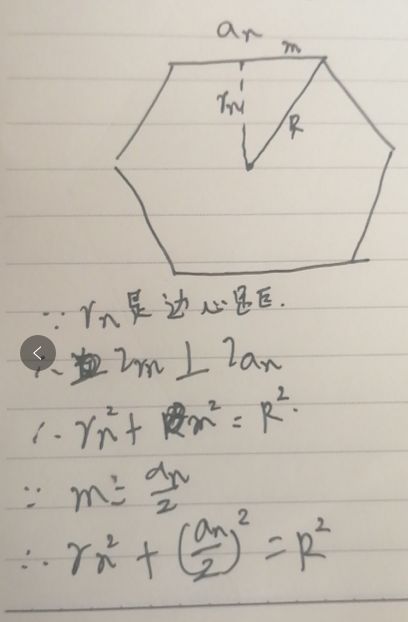 aₙ
m
rₙ
R
∵ rₙ是边心距.
∴ lm ⊥ laₙ
∴ rₙ² + m² = R².
∵ m = aₙ/2
∴ rₙ² + (aₙ/2)² = R²